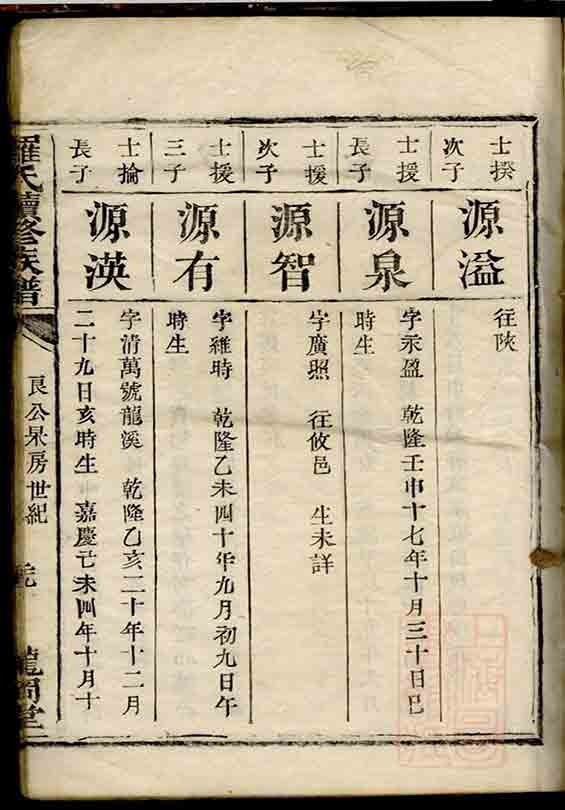 士揆
次子
源溢
往陝
士援
長子
源泉
字永盈 乾隆壬申十七年十月三十日巳
時生
士援
次子
源智
字廣照 往攸邑 生未詳
士援
三子
源有
字維時 乾隆乙未四十年九月初九日午
時生
士掄
長子
源渶
字清萬號龍溪 乾隆乙亥二十年十二月
二十九日亥時生 嘉慶己未四年十月十
羅氏續修族譜
良公杲房世紀